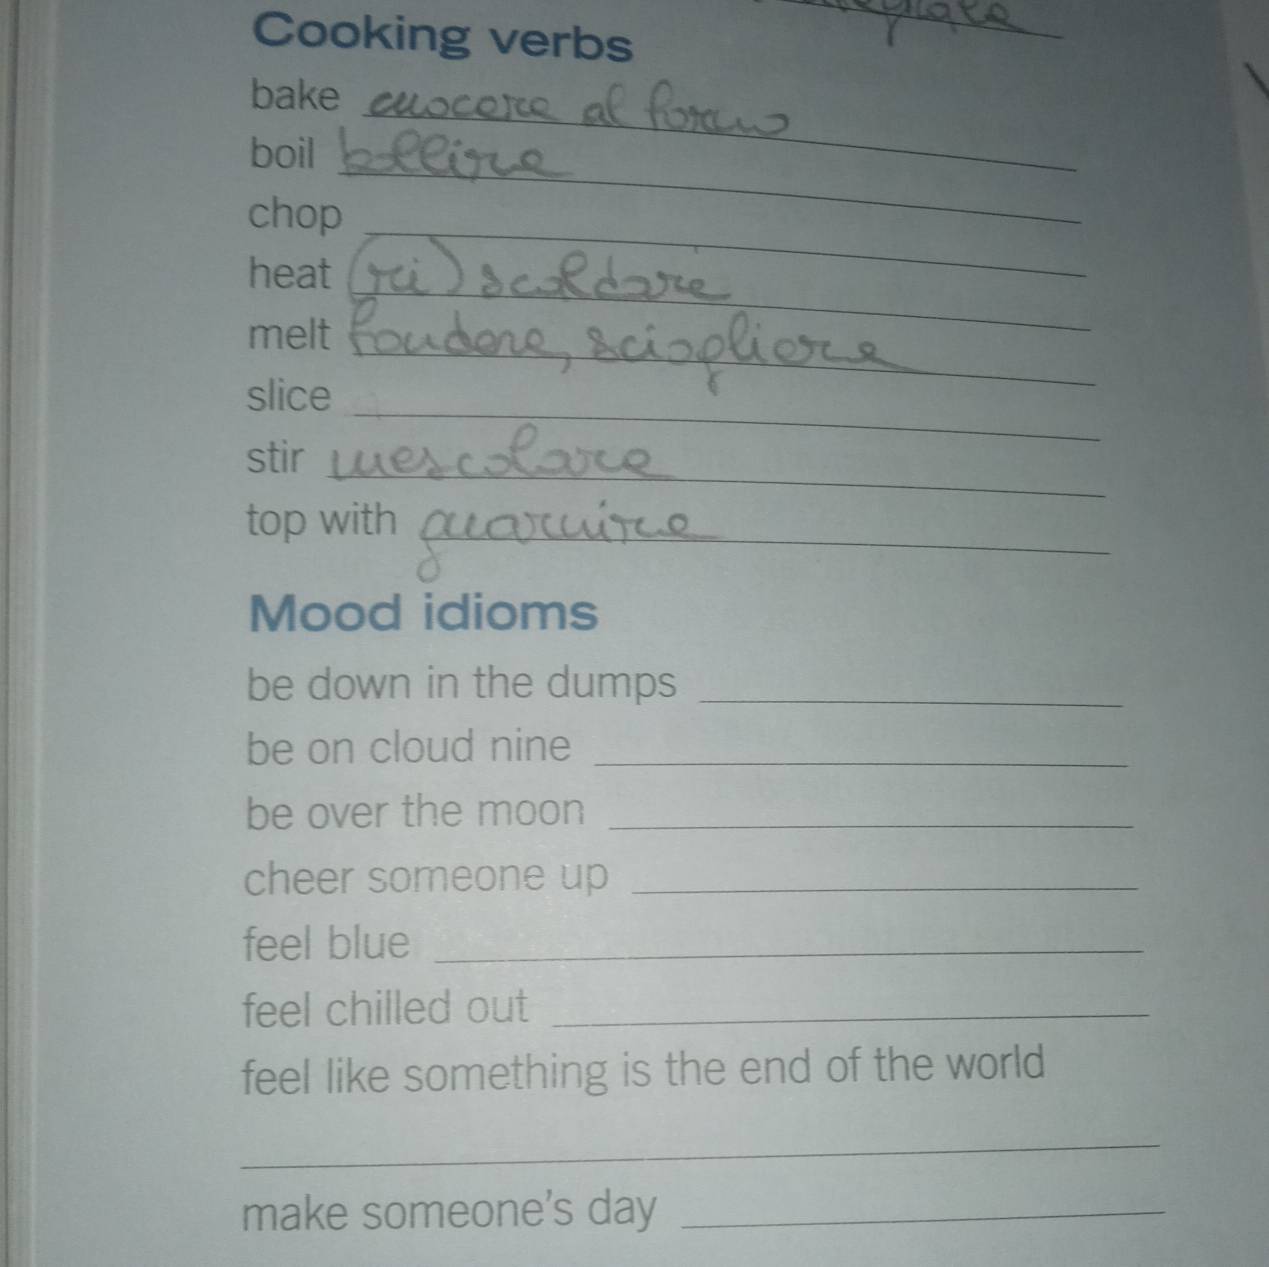 Cooking verbs
bake cuocere al forno
boil bollire
chop
heat (ri) scaldare
melt fondere, sciogliere
slice
stir mescolare
top with guarnire
Mood idioms
be down in the dumps
be on cloud nine
be over the moon
cheer someone up
feel blue
feel chilled out
feel like something is the end of the world
make someone's day